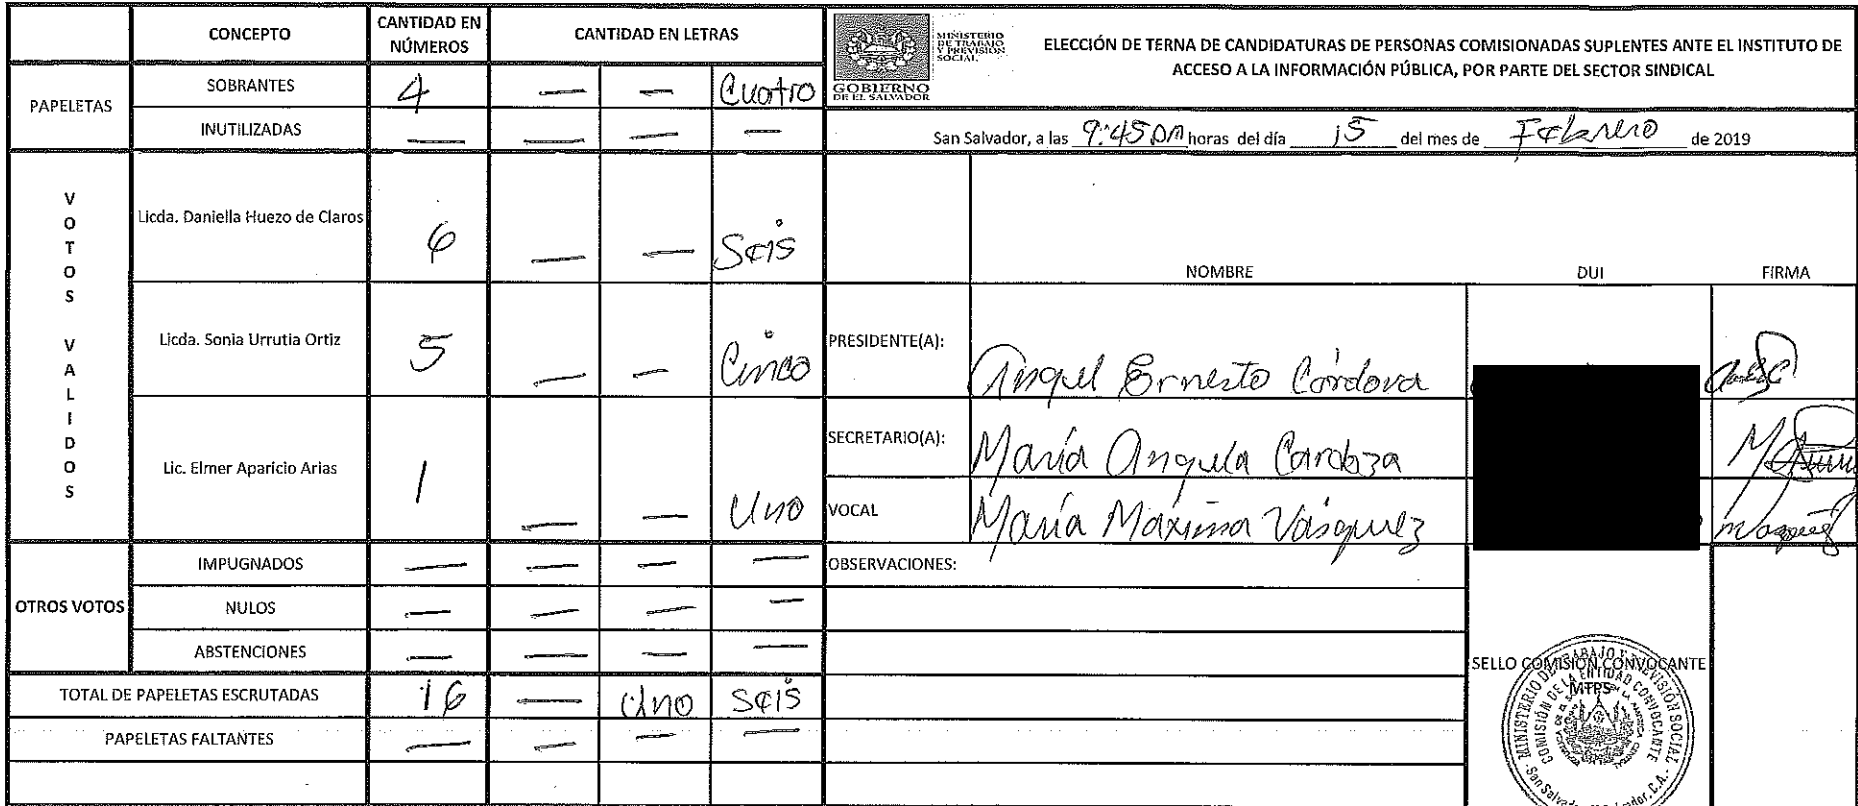 CONCEPTO
CANTIDAD EN NÚMEROS
CANTIDAD EN LETRAS
PAPELETAS
SOBRANTES 4 — — Cuatro
INUTILIZADAS — — — —
VOTOS VALIDOS
Licda. Daniella Huezo de Claros 6 — — Seis
Licda. Sonia Urrutia Ortiz 5 — — Cinco
Lic. Elmer Aparicio Arias 1 — — Uno
OTROS VOTOS
IMPUGNADOS — — — —
NULOS — — — —
ABSTENCIONES — — — —
TOTAL DE PAPELETAS ESCRUTADAS 16 — Uno Seis
PAPELETAS FALTANTES — — — —
MINISTERIO
DE TRABAJO
Y PREVISIÓN
SOCIAL
GOBIERNO
DE EL SALVADOR
ELECCIÓN DE TERNA DE CANDIDATURAS DE PERSONAS COMISIONADAS SUPLENTES ANTE EL INSTITUTO DE
ACCESO A LA INFORMACIÓN PÚBLICA, POR PARTE DEL SECTOR SINDICAL
San Salvador, a las 9:45 pm horas del día 15 del mes de Febrero de 2019
NOMBRE DUI FIRMA
PRESIDENTE(A): Angel Ernesto Córdova
SECRETARIO(A): María Angela Cardoza
VOCAL María Máxima Vásquez
OBSERVACIONES:
SELLO COMISIÓN CONVOCANTE
MTPS
MINISTERIO DE TRABAJO Y PREVISIÓN SOCIAL
COMISIÓN DE LA ENTIDAD CONVOCANTE